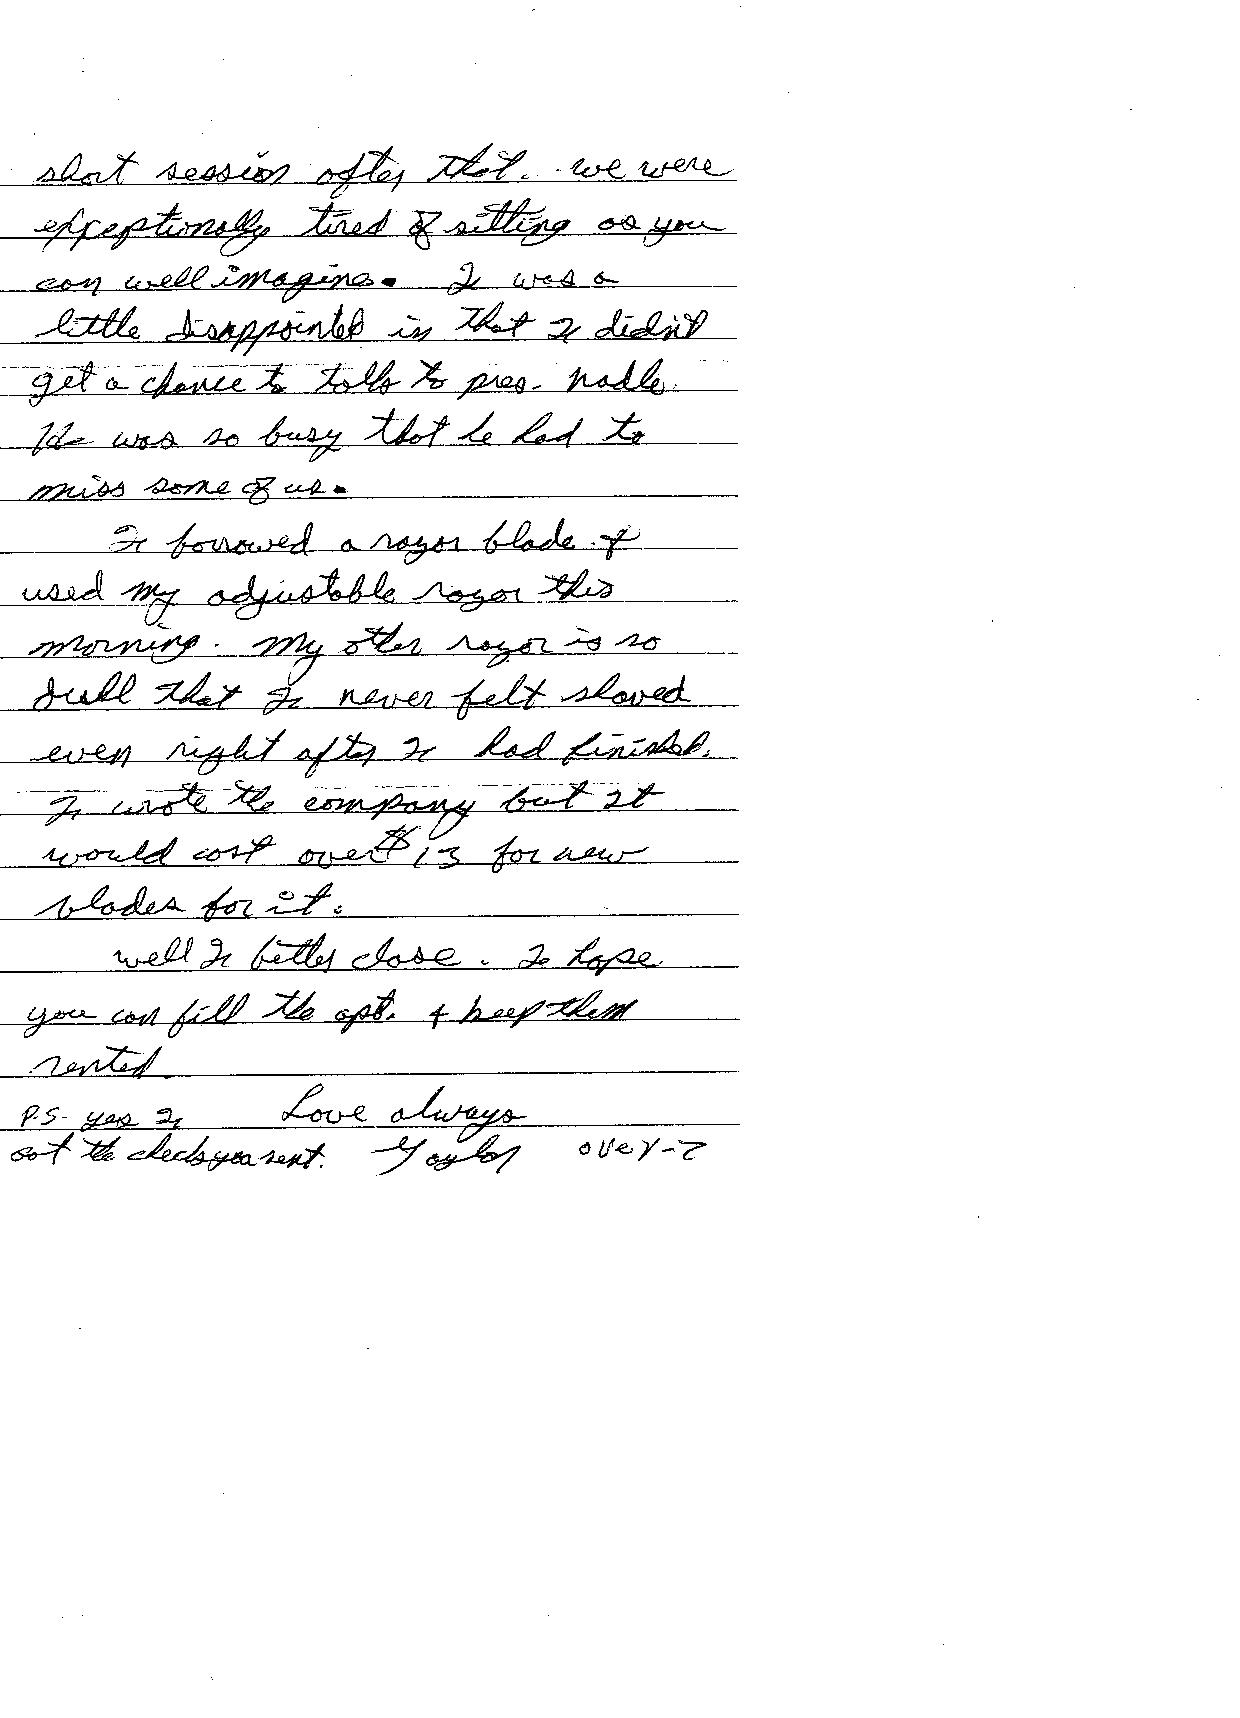 short session after that. we were
exceptionally tired of sitting as you
can well imagine. I was a
little disappointed in that I didn't
get a chance to talk to pres.
He was so busy that he had to
miss some of us.
I borrowed a razor blade &
used my adjustable razor this
morning. My other razor is so
dull that I never felt shaved
even right after I had finished.
I wrote the company but it
would cost over $13 for new
blades for it.
well I better close. I hope
you can fill the apt. & keep them
rented
P.S. yes I Love always
got the checks you sent. Taylor over->